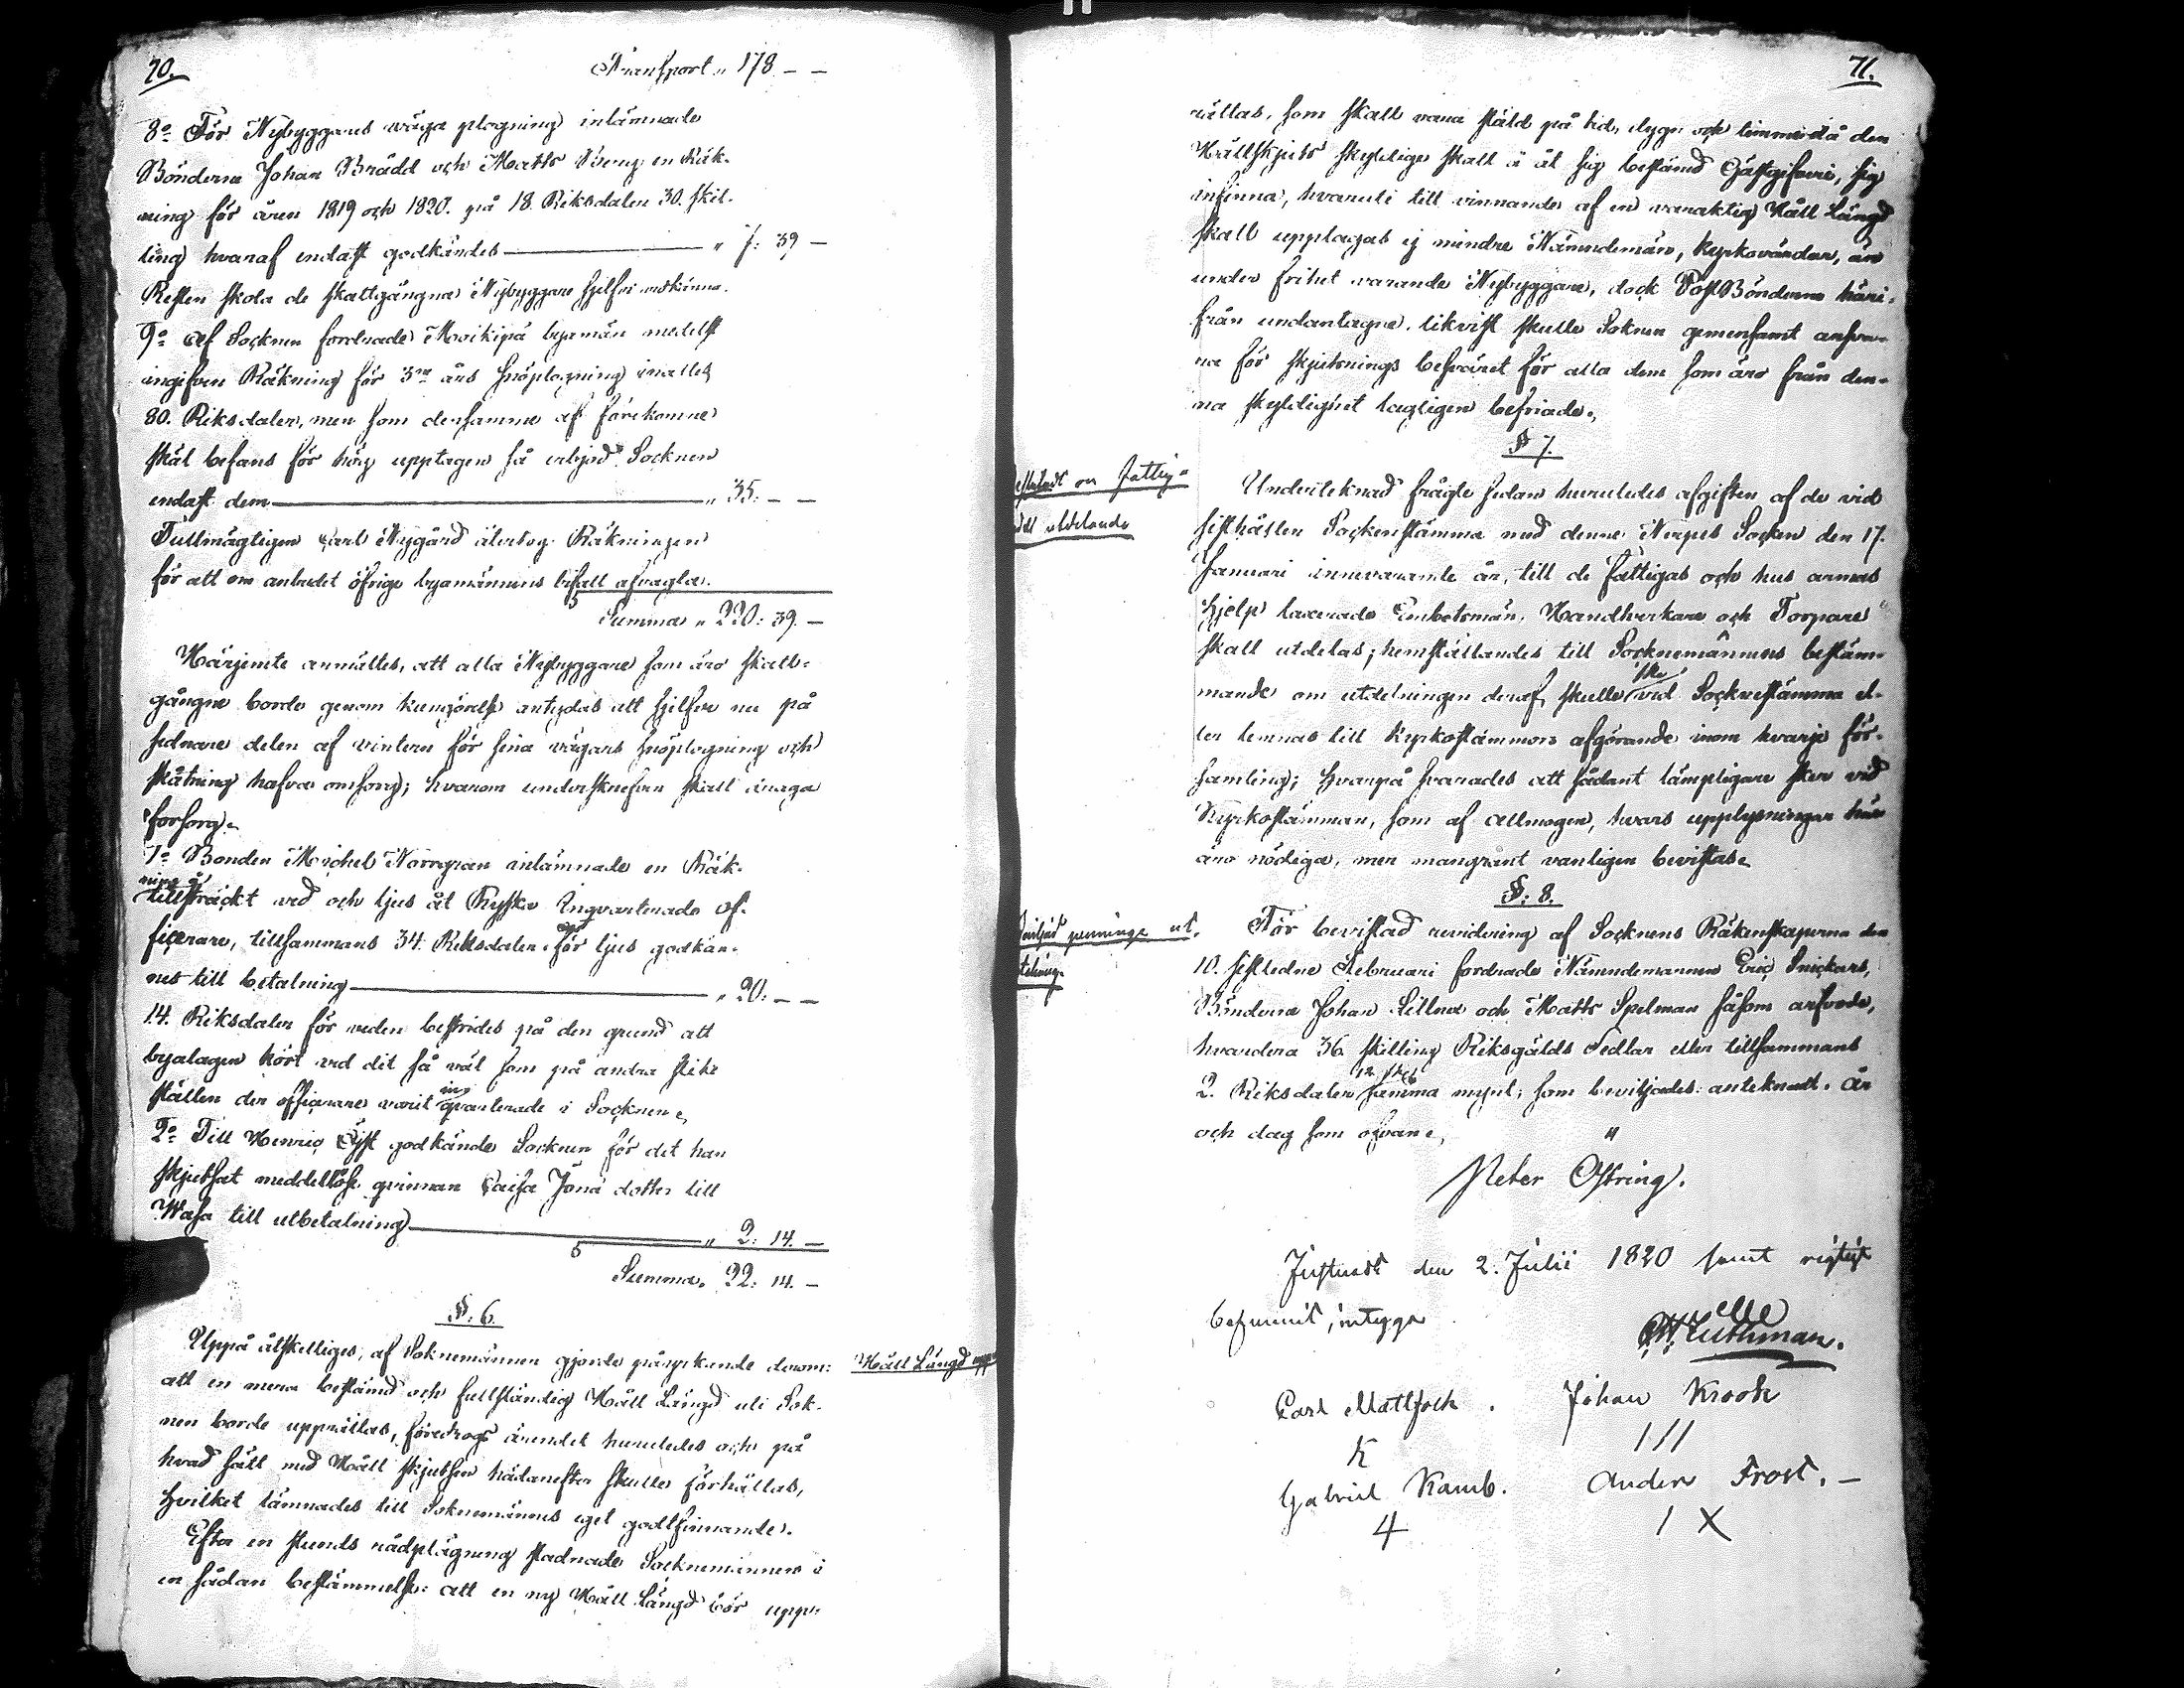 70.
Transport " 178. – –
8:o För Nybyggarnes väga plogning inlämnade
Bönderne Johan Brädd och Matts Berg en Räk-
ning för åren 1819 och 1820. på 18. Riksdaler 30. skil-
ling hvaraf endast godkändes " 7: 39 –
Resten skola de skattgångna Nybyggare sjelfve
9:o Af Socknen fordrade Moikipä byamän medelst
ingifven Räkning för 3:ne års snöplogning
80. Riksdaler, men som densamme af förekomne
skäl befans för hög upptagen så erbjöd Socknen
endast dem " 35: – –
Fullmägtigen Carl Nygård återtog Räkningen
för att om anbudet öfrige byamännens bifall afvagta.
Summa " 220: 39. –
Härjemte anmältes, att alla Nybyggare som äro skatt-
gångne borde genom kungörelse antydas att sjelfve nu på
sednare delen af vintern för sina vägars snöplogning och
skåtning hafva omsorg; hvarom underskrefven skall draga
försorg.
1:o Bonden Michel Norrgran inlämnade en Räk-
ning å
tillsträckt ved och ljus åt Ryska Inqvarterade of-
ficerare, tillsammans 34. Riksdaler för ljus godkän-
nes till betalning " 20: – –
14. Riksdaler för veden bestrides på den grund att
byalagen kört ved dit så väl som på andra slike
ställen der officerare varit inqvarterade i Socknen.
2:o Till Henric Syst godkände Socknen för det han
skjutsat meddellöse qvinnan Caisa Jona dotter till
Wasa till utbetalning " 2: 14. –
Summa " 22: 14. –
§. 6.
Uppå åtskelliges, af Soknemännen gjorde påyrkande derom:
Håll Längd
att en mera bestämd och fullständig Håll Längd uti Sok-
nen borde upprättas, föredrogs ärendet huruledes och på
hvad sätt med Håll skjutsen hädanefter skulle förhållas,
hvilket lämnades till Soknemännens eget godtfinnande.
Efter en stunds rådplägning stadnade Socknemännen i
en sådan bestämmelse: att en ny Håll Längd bör upp-
71.
rättas, som skall vara stäld på tid, dygn och timme då den
Hållskjuts skyldige skall å åt sig bestämd Gästgifveri, sig
infinna, hvaruti till vinnande af en varaktig Håll Längd
skall upptagas ej mindre Nämndemän, kyrkovärdar, än
under frihet varande Nybyggare, dock PostBönderne häri-
från undantagne. likvist skulle Soknen gemensamt ansva-
ra för skjutsnings besväret för alla dem som äro från den-
na skyldighet lagligen befriade.
§ 7.
Undertecknad frågte sedan huruledes afgiften af de vid
sisthållen Sockenstämma med denne Nerpes Socken den 17.
Januari innevarande år, till de fattigas och hus armas
hjelp taxerade Embetsmän, Handtverkare och Torpare
skall utdelas; hemställandes till Socknemännens bestäm-
mande om utdelningen deraf skulle ske vid Socknestämma el-
ler lemnas till Kyrkostämmors afgörande inom hvarje för-
samling; hvarpå svarades att sådant lämpligare sker vid
Kyrkostämman, som af allmogen, hvars upplysningar här
äro nödiga, mer mangrant vanligen bevistas.
§: 8.
penninge ut.
För bevistad revidering af Socknens Räkenskaperna den
10. sistledne Februari fordrade Nämndemannen Eric Snickars,
Bönderne Johan Lillna och Matts Spelman såsom arfvode,
hvardera 36. skilling Riksgälds Sedlar eller tillsammans
2. Riksdaler 12 sk samma mynt; som beviljades. anteknadt. År
och dag som ofvan.
Peter Ostring.
Justerat den 2. Julii 1820 samt rigtigt
befunnit, intyga
Luthman.
Carl Mattsoch. Johan Krook
K 111
Gabriel Kamb. Anders Frost. –
4 1 X